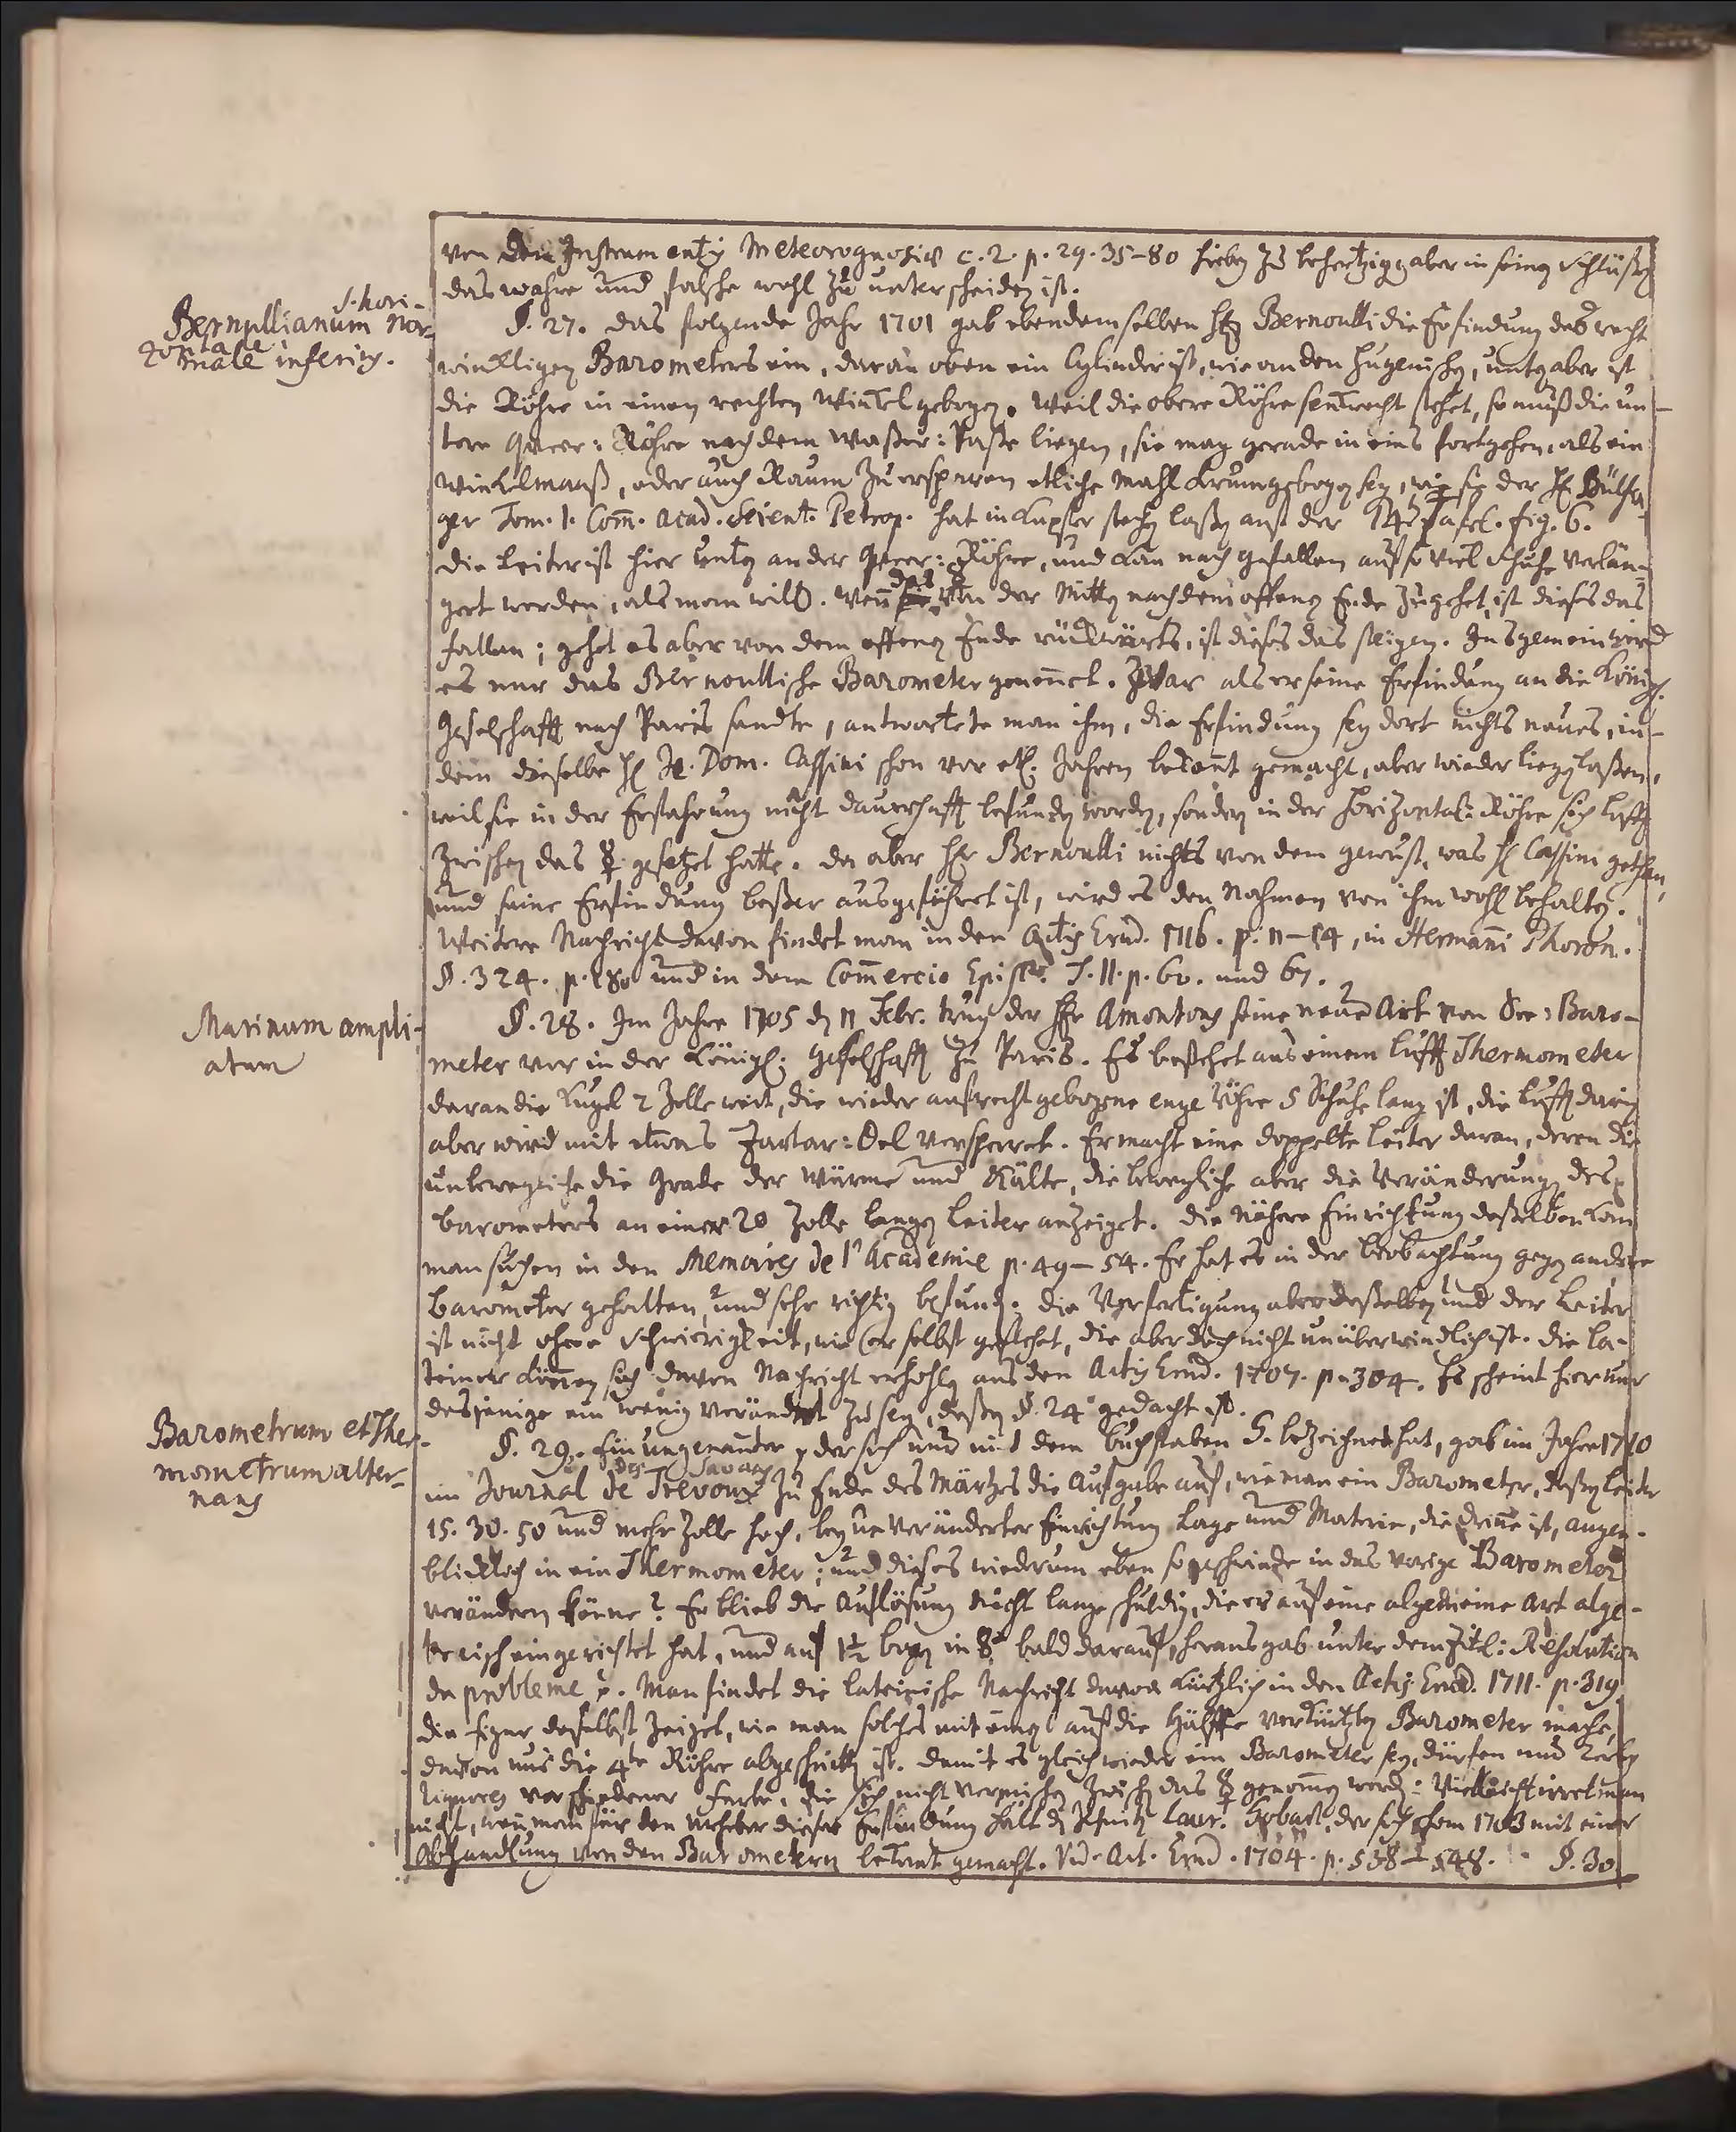 von den Instrumentis Meteorognosiæ c. 2. p. 29. 35-80 hiebey zu behertzigen aber in seinen Schlüßen
das wahre und falsche wohl zu unterscheiden ist.
S. hori-
Bernullianum Nor-
zontale
male inferius.
§. 27. Das folgende Jahr 1701 gab ebendemselben H. Bernoulli die Erfindung des recht
wincklligen Barometers ein, daran oben ein Cylinder ist, wie an den Hugenischen, unten aber ist
die Röhre in einen rechten Winckel gebogen. Weil die obere Röhre senckrecht stehet, so muß die un-
tere Queer-Röhre nach dem Waßer-Paße liegen, sie mag gerade in eins fortgehen, als ein
Winckelmaaß, oder auch Raum zu ersparen etliche mahl krum gebogen seyn, wie sie der H. Bülfin-
ger Tom. 1. Comm. Acad. Scient. Petrop. hat in Kupfer stechen laßen auf der Tafel. fig. 6.
Die Leiter ist hier unten an der Queer-Röhre, und kan nach gefallen auf so viel Schuhe verlän-
gert werden, als man will. Wenn das von der Mitten nach dem offenen Ende zugehet, ist dieses das
fallen; gehet es aber von dem offenen Ende rückwärts, ist dieses das steigen. Insgemein wird
es nur das Bernoullische Barometer genennet. Zwar als er seine Erfindung an die Königl.
Gesellschafft nach Paris sandte, antwortete man ihm, die Erfindung sey dort nichts neues, in-
dem dieselbe H. Dom. Cassini schon vor etl. Jahren bekannt gemacht, aber wieder liegen laßen,
weil sie in der Erfahrung nicht dauerhafft befunden worden, sondern in der Horizontal-Röhre sich Lufft
zwischen das ☿ gesetzet hatte. Da aber H. Bernoulli nichts von dem gewust, was H. Cassini gethan,
und seine Erfindung beßer ausgeführet ist, wird es den Nahmen von ihm wohl behalten.
Weitere Nachricht davon findet man in den Actis Erud. 1716. p. 11-14, in Hermanni Phoron.
§. 324. p. 180 und in dem Commercio Epist. T. II. p. 60. und 67.
Marinum ampli-
atum
§. 28. Im Jahre 1705 d. 11 Febr. trug der H. Amontons seine neue Art von See-Baro-
meter vor in der Königl. Gesellschafft zu Paris. Es bestehet aus einem Lufft Thermometer
daran die Kugel 2 Zolle weit, die wieder aufrecht gebogene enge Röhre 5 Schuhe lang ist, die Lufft darin
aber wird mit etwas Tartar-Oel versperret. Er macht eine doppelte Leiter daran, deren die
unbewegliche die Grade der Wärme und Kälte, die bewegliche aber die Veränderung des
Barometers an einer 20 Zolle langen Leiter anzeiget. Die Nähere Einrichtung deßelben kan
man suchen in den Memoires de l'Academie p. 49-54. Er hat es in der Beobachtung gegen andere
Barometer gehalten, und sehr richtig befund. Die Verfertigung aber deßelben und der Leiter
ist nicht ohne Schwierigkeit, wie er selbst gestehet, die aber doch nicht unüberwindlich ist. Die La-
teiner können sich davon Nachricht erhohlen aus den Actis Erud. 1707. p. 304. Es scheint hier nur
desjenige ein wenig verändert zu seyn, deßen §. 24 gedacht ist.
Barometrum et Ther-
mometrum alter-
nans
§. 29. Ein ungenanter, der sich nur mit dem Buchstaben G. bezeichnet hat, gab im Jahre 1710
des Savans
im Journal de Trevoux zu Ende des Märtzes die Aufgabe auf, wie man ein Barometer, deßen Leiter
15. 30. 50 und mehr Zolle hoch, bey unveränderter Einrichtung Lage und Materie, die drinne ist, augen-
blicklich in ein Thermometer; und dieses wiederum eben so geschwinde in das vorige Barometer
verändern könne? Er blieb die Auflösung nicht lange schuldig, die er auf eine algemeine Art alge-
breisch eingerichtet hat, und auf 1½ Bogen in 8° bald darauf herausgab unter dem Titl: Resolution
du probleme. Man findet die lateinische Nachricht davon kürtzlich in den Actis Erud. 1711. p. 319.
die figur daselbst zeiget, wie man solches mit einem auf die Hälffte verkürtzten Barometer mache,
davon nur die 4te Röhre abgeschnitten ist. Damit es gleich wieder ein Barometer sey, dürfen nur
liquores verschiedener Farbe, die sich nicht vermischen zwischen das ☿ genommen werd: Vielleicht irret man
nicht, wenn man für den Urheber dieser Erfindung hält Laur. Gobart, der sich schon 1703 mit einer
Abhandlung von den Barometern bekannt gemacht. Vid. Act. Erud. 1704. p. 538-548. §. 30